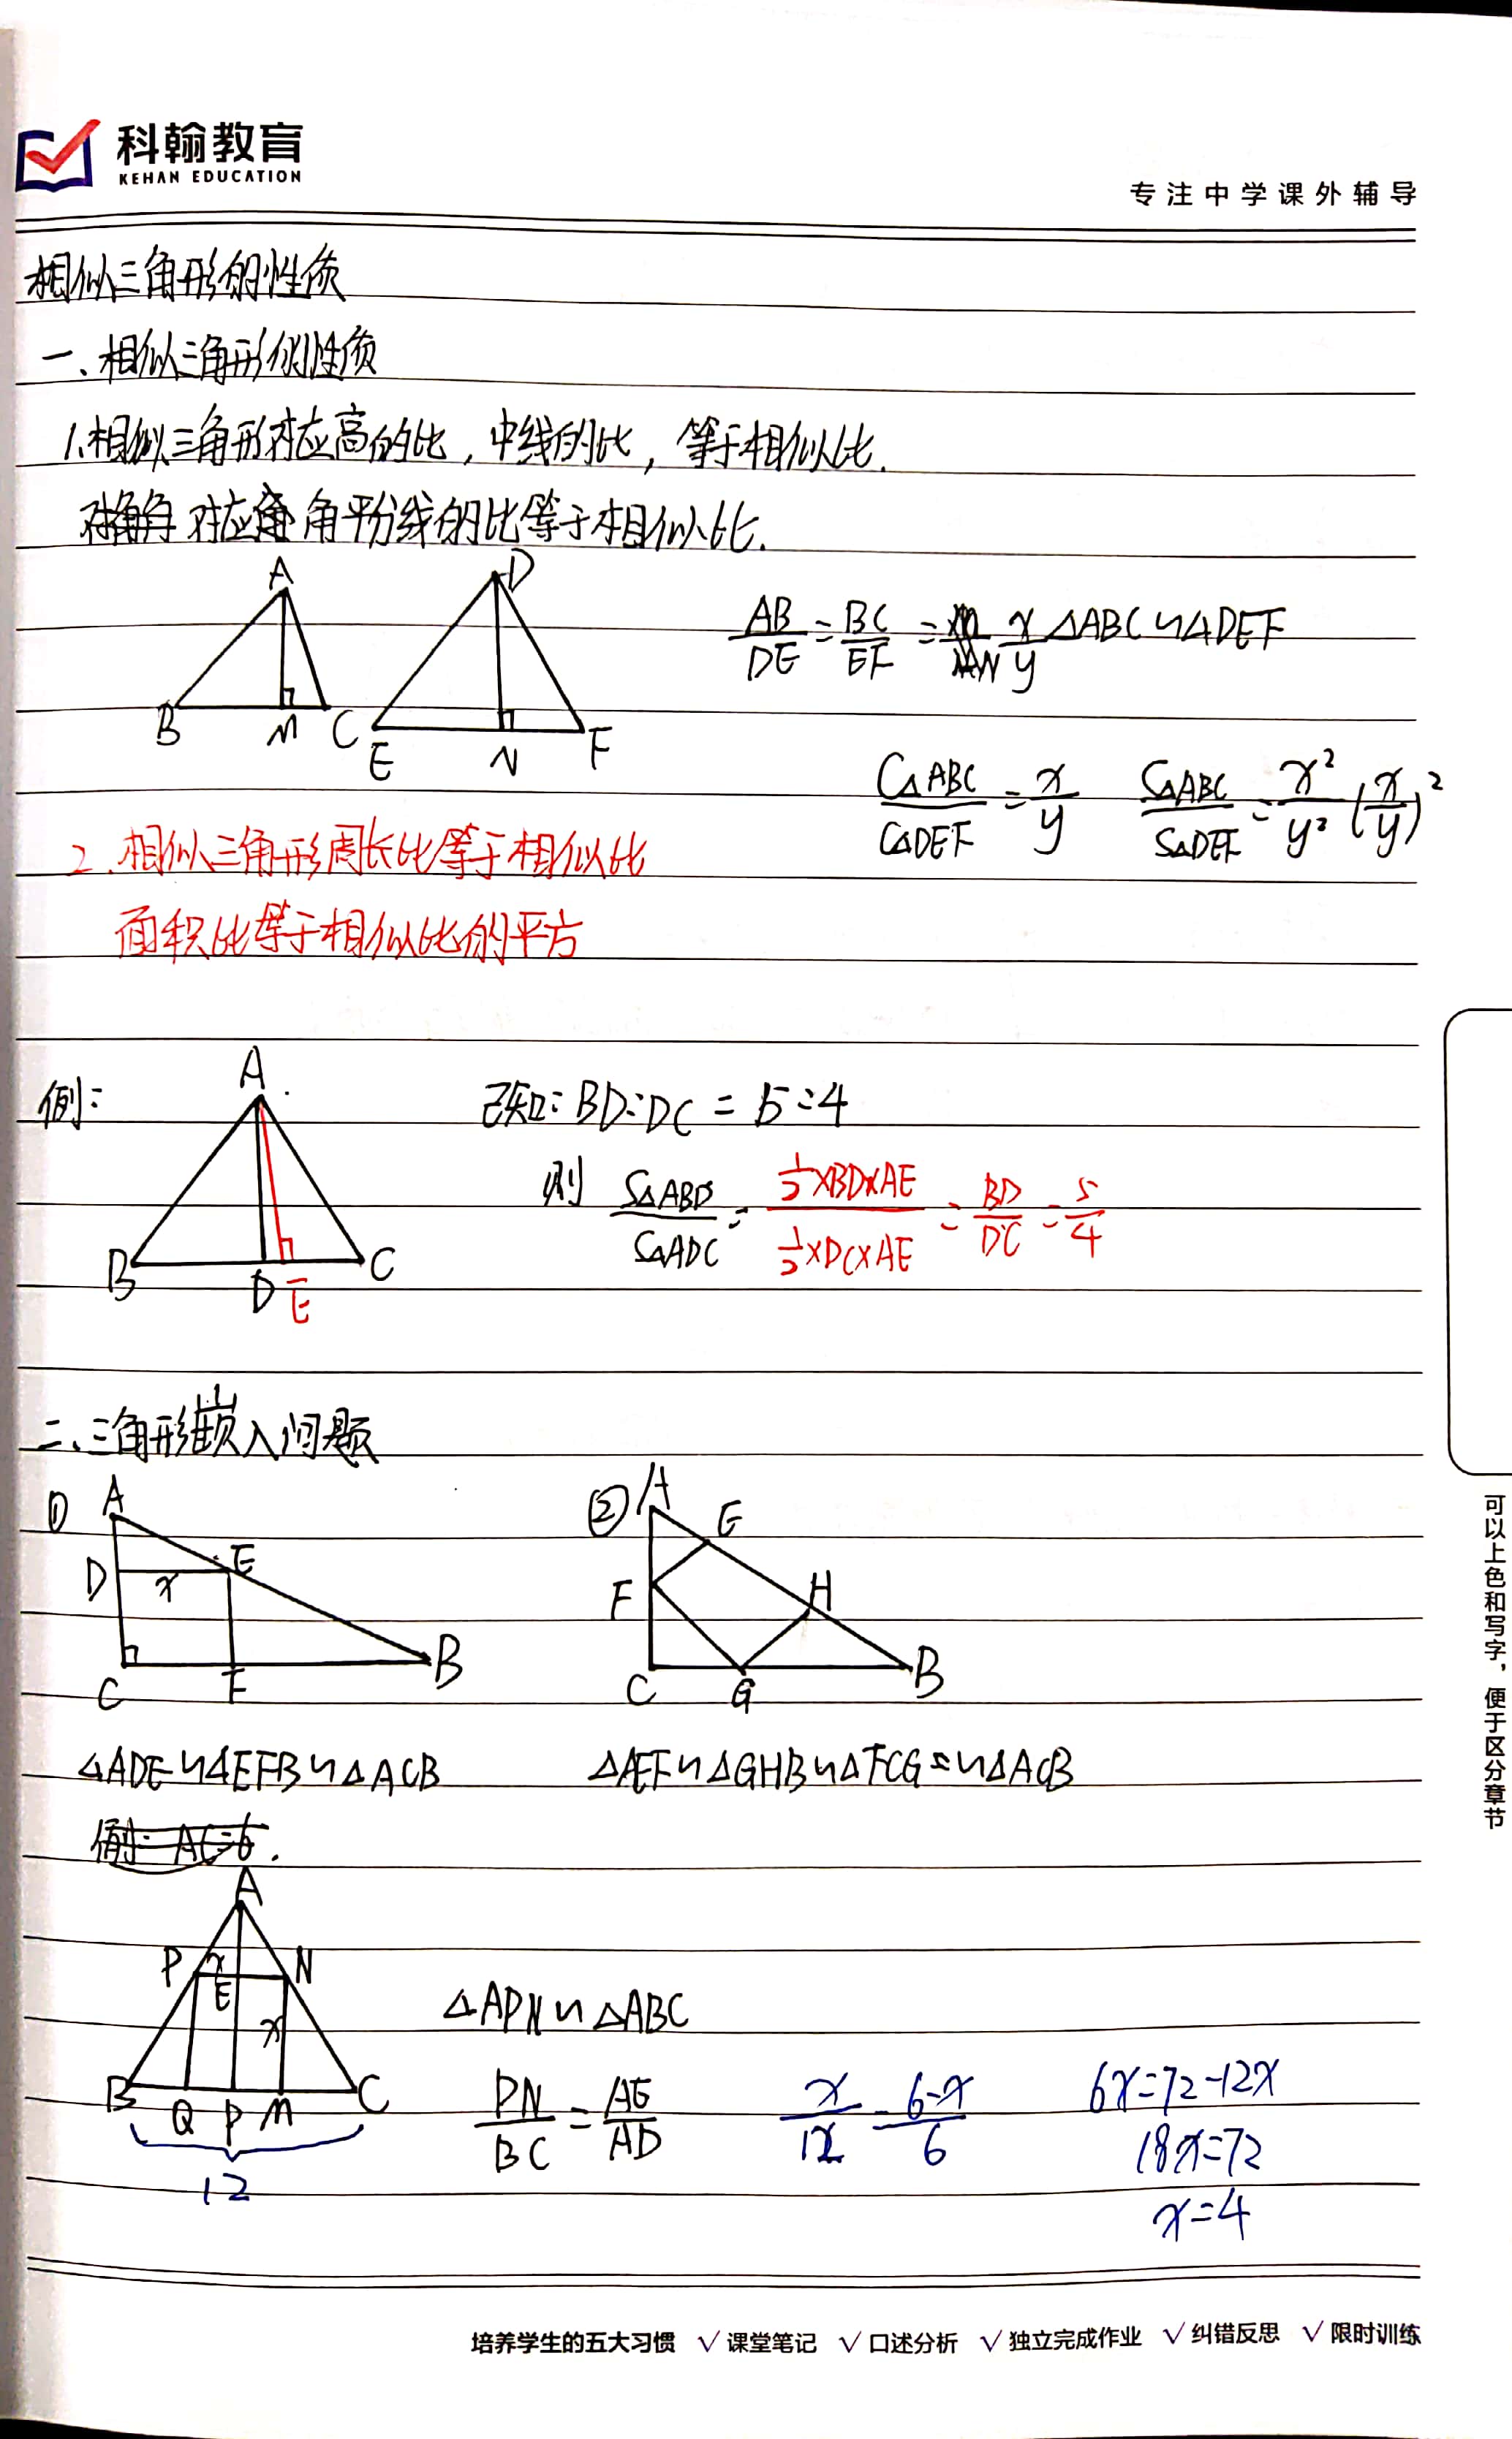 科翰教育
KEHAN EDUCATION
专注中学课外辅导
相似三角形的性质
一、相似三角形的性质
1.相似三角形对应高的比，中线的比，等于相似比.
对应角平分线的比等于相似比.
A
D
B M C
E N F
AB/DE = BC/EF = x/y △ABC∽△DEF
C△ABC/C△DEF = x/y S△ABC/S△DEF = x²/y² (x/y)²
2.相似三角形周长比等于相似比
面积比等于相似比的平方
例:
A
B D E C
已知: BD:DC = 5:4
则 S△ABD/S△ADC = ½×BD×AE/½×DC×AE = BD/DC = 5/4
二、三角形嵌入问题
①
A
D x E
C F B
②
A E
F H
C G B
△ADE∽△EFB∽△ACB
△AEF∽△GHB∽△FCG∽△ACB
例: AC=6.
A
P x N
E
x
B Q P M C
12
△APN∽△ABC
PN/BC = AE/AD
x/12 = 6-x/6
6x=72-12x
18x=72
x=4
可以上色和写字，便于区分章节
培养学生的五大习惯 √课堂笔记 √口述分析 √独立完成作业 √纠错反思 √限时训练